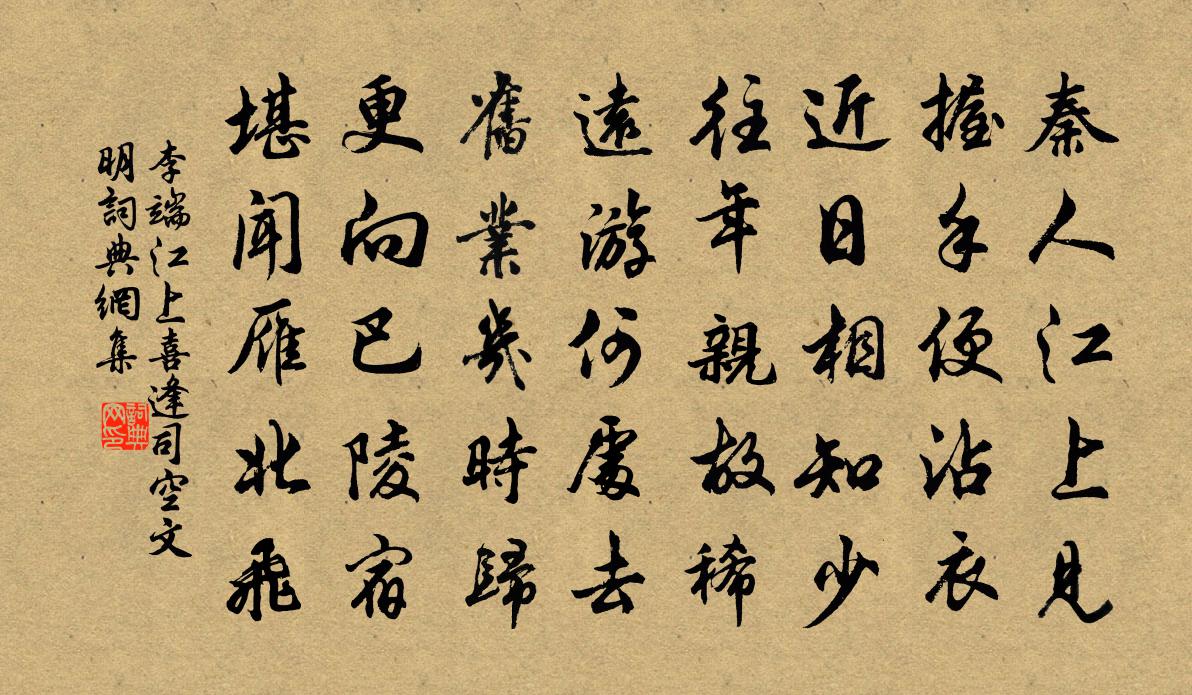 秦人江上見
握手便沾衣
近日相知少
往年親故稀
遠游何處去
舊業幾時歸
更向巴陵宿
堪聞雁北飛
李端江上喜逢司空文
明詞典網集
詞典
网印